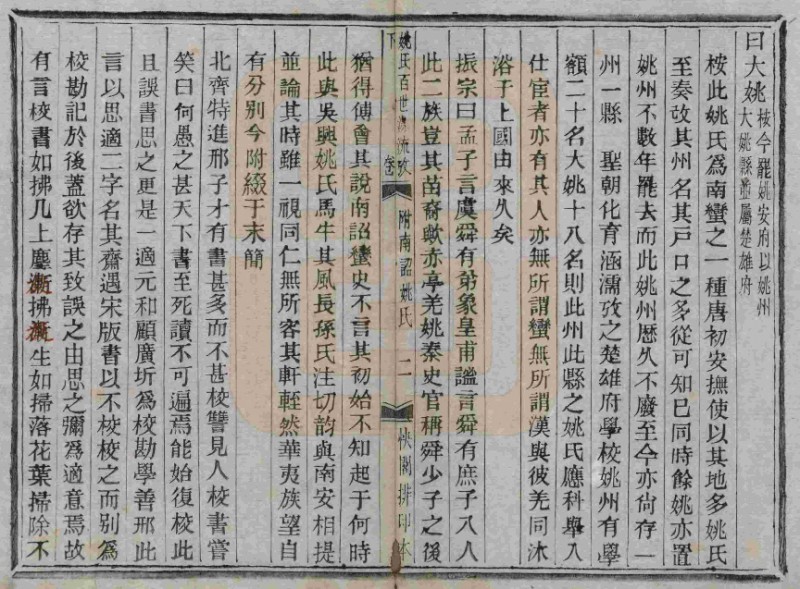 曰大姚 按今罷姚安府以姚州
大姚縣並屬楚雄府
桉此姚氏爲南蠻之一種唐初安撫使以其地多姚氏
至奏改其州名其戸口之多從可知巳同時餘姚亦置
姚州不數年罷去而此姚州歷久不廢至今亦尙存一
州一縣 聖朝化育涵濡攷之楚雄府學校姚州有學
額二十名大姚十八名則此州此縣之姚氏應科舉入
仕宦者亦有其人亦無所謂蠻無所謂漢與彼羌同沐
浴于上國由來久矣
振宗曰孟子言虞舜有弟象皇甫謐言舜有庶子八人
此二族豈其苗裔歟亦亭羌姚秦史官稱舜少子之後
姚氏百世源流攷 卷下 附南詔姚氏 二 快閣排印本
猶得傅會其說南詔蠻史不言其初始不知起于何時
此與吳興姚氏馬牛其風長孫氏注切韵與南安相提
並論其時雖一視同仁無所容其軒輊然華夷族望自
有分別今附綴于末簡
北齊特進邢子才有書甚多而不甚校讐見人校書嘗
笑曰何愚之甚天下書至死讀不可遍焉能始復校此
且誤書思之更是一適元和顧廣圻爲校勘學善邢此
言以思適二字名其齋遇宋版書以不校校之而別爲
校勘記於後蓋欲存其致誤之由思之彌爲適意焉故
有言校書如拂几上塵漸拂漸生如掃落花葉掃除不